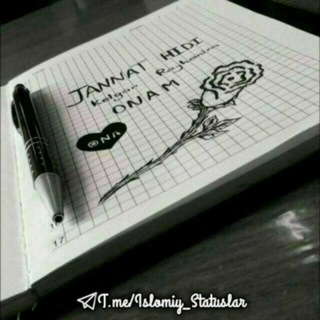 JANNAT HIDI
Kelgan Rayhonim
ONAM
@NA
17
T.me/Islomiy_Statuslar